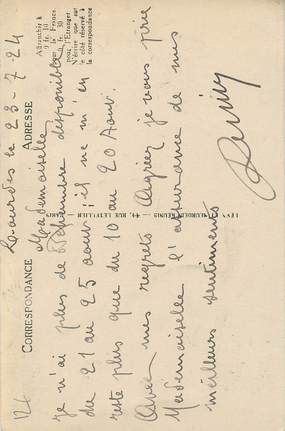 CORRESPONDANCE
ADRESSE
Affranchir à
0 fr. 10
pour la France,
0 fr. 30
pour l'Étranger
N'écrire que sur
le côté réservé à
la correspondance
LÉVY &
RÉUNIS — 44, RUE LETELLIER —
Lourdes le 23-7-24
Mademoiselle
Je n'ai plus de chambre disponible
du 21 au 25 aout; il ne m'en
reste plus que du 10 au 20 Aout.
Avec mes regrets Agréez je vous prie
Mademoiselle l'assurance de mes
meilleurs sentiments